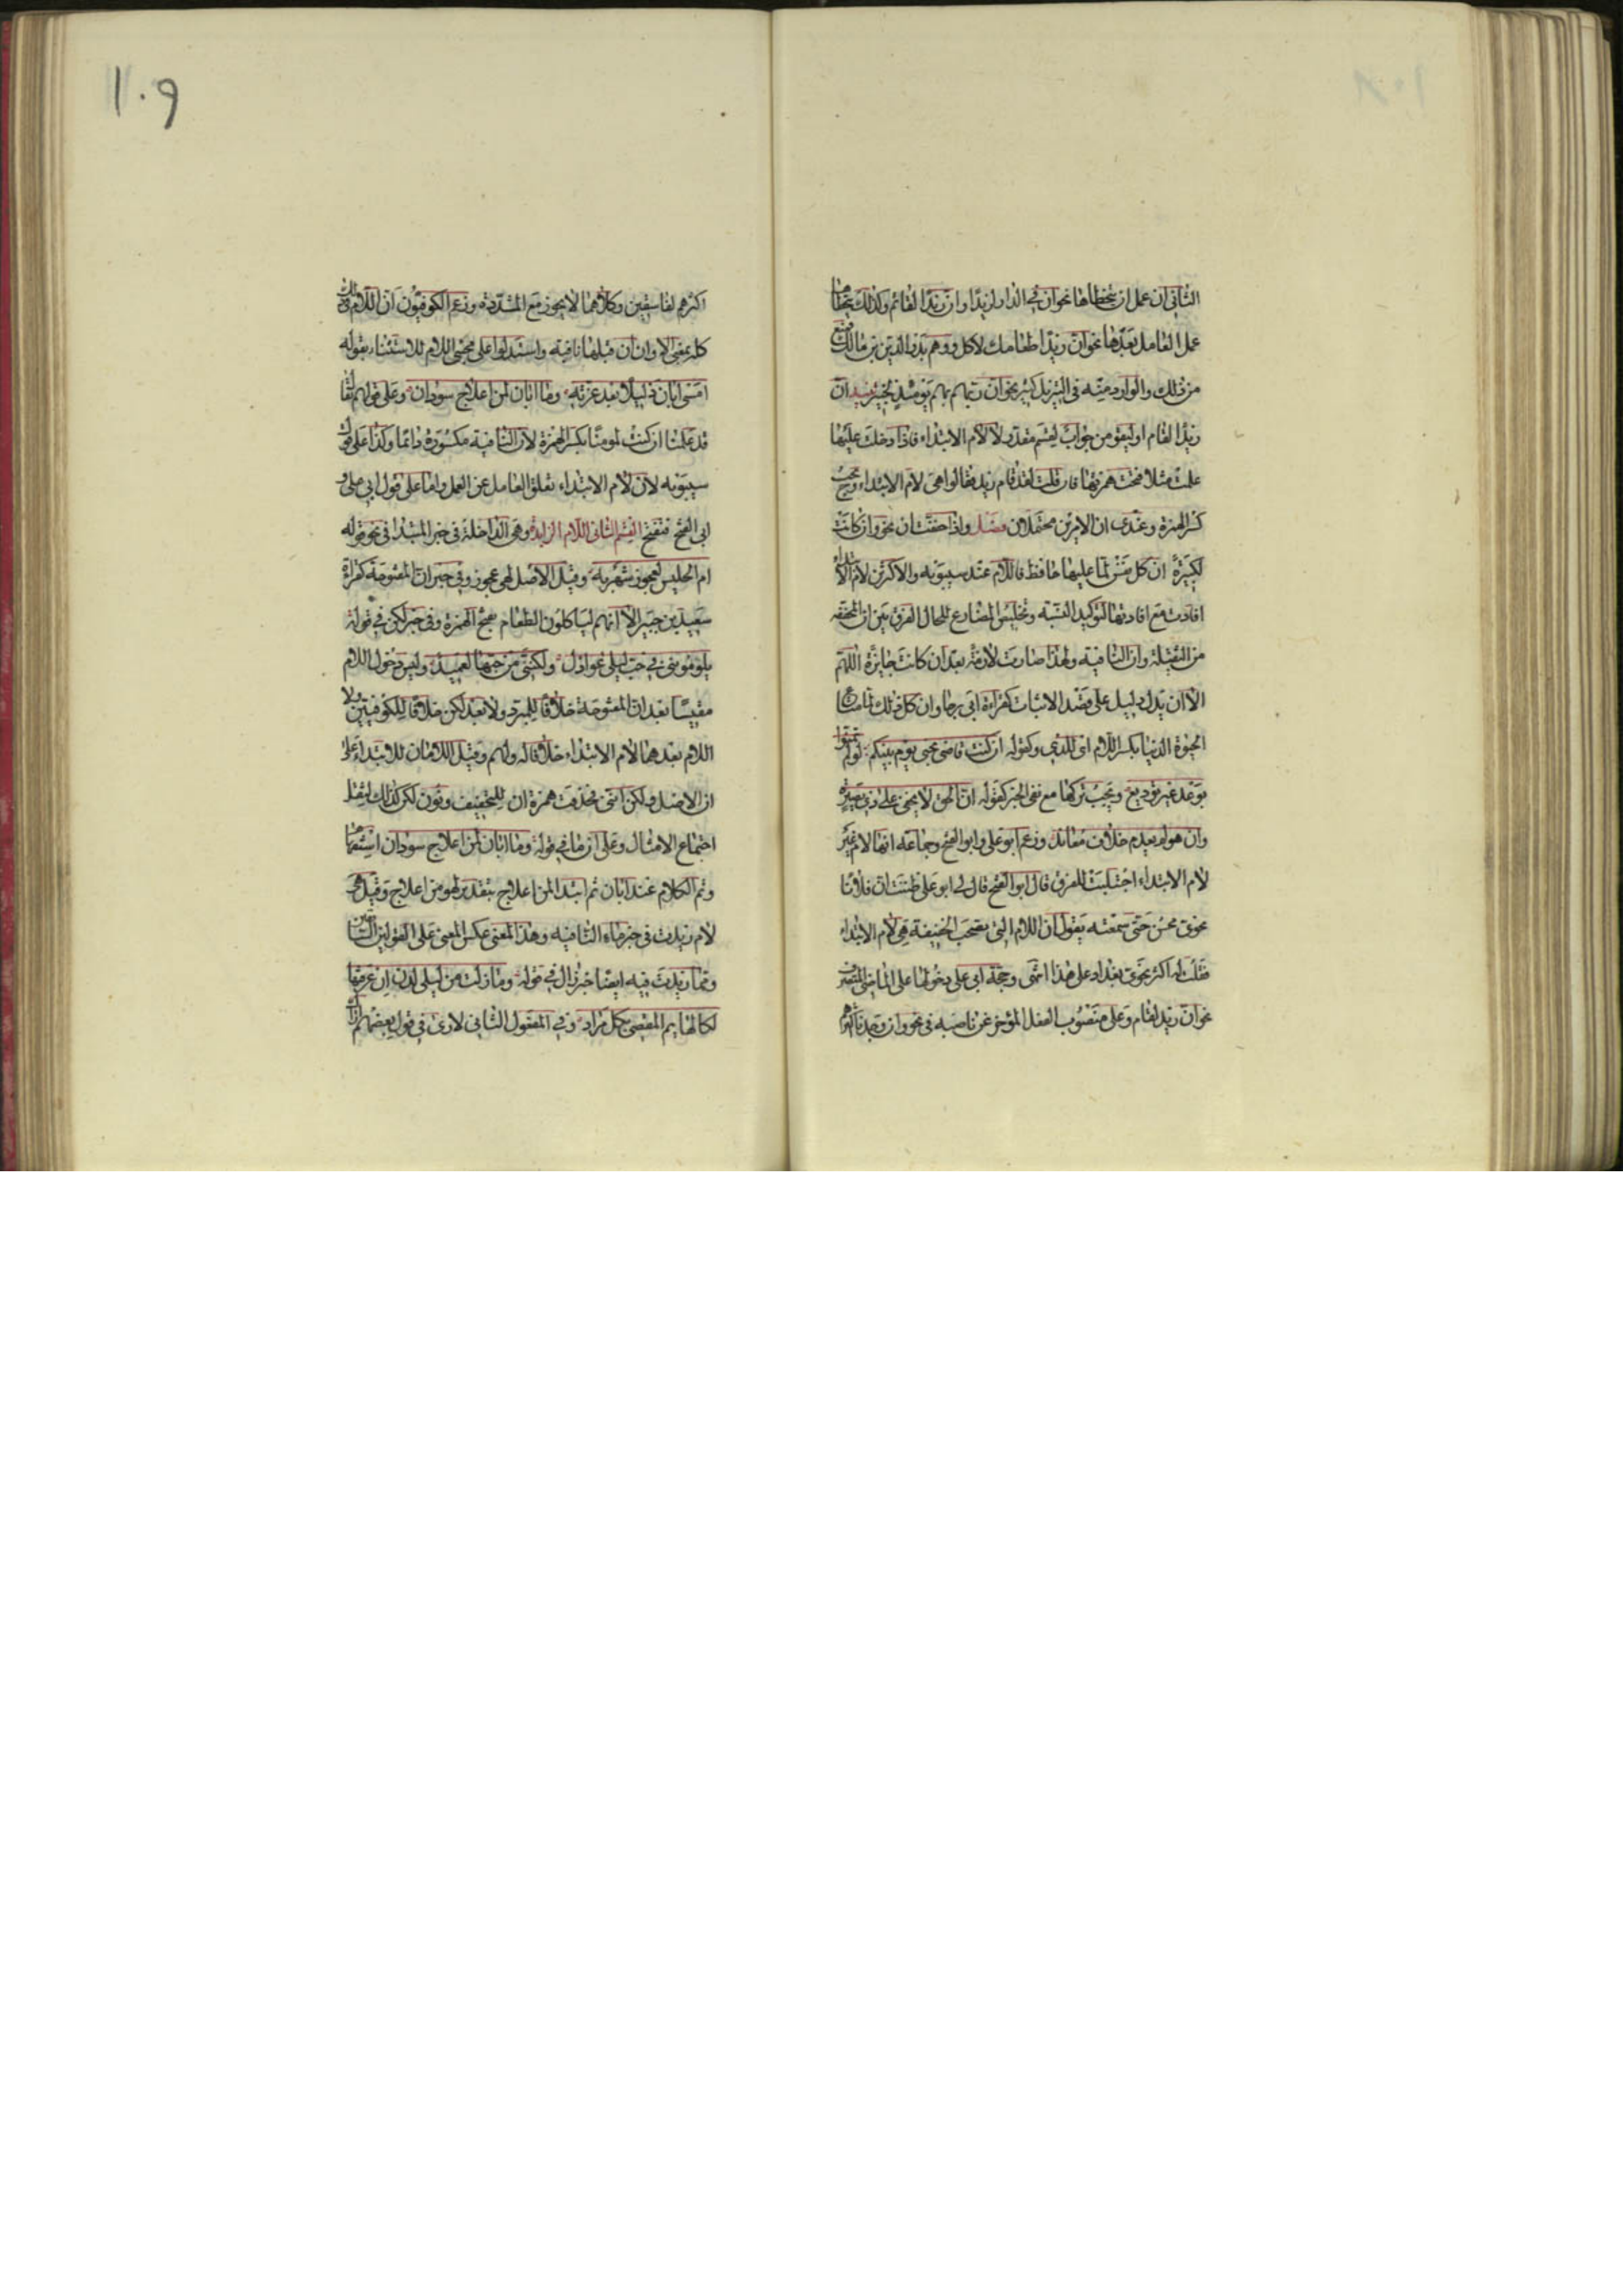 الثانى ان عمل ان يتخطاها نحو ان فى الدار لزيدا وان زيدا لقائم وكذلك يتخطاها
عمل العامل بعدها نحو ان زيدا طعامك لاكل ووهم بدر الدين بن مالك فمنع
من ذلك والوارد منه فى التنزيل كثير نحو ان ربهم بهم يومئذ لخبير تنبيه ان
زيدا لقام او ليقومن جواب لقسم مقدر لا لام الابتداء فاذا دخلت عليها
علمت مثلا فتحت همزتها فان قلت لقد قام زيد فقالوا هى لام الابتداء ويجب
كسر الهمزة وعندى ان الامرين محتملان فصل واذا خففت ان نحو وان كانت
لكبيرة ان كل نفس لما عليها حافظ فاللام عند سيبويه والاكثرين لام الابتداء
افادت مع افادتها لتوكيد النسبة وتخليص المضارع للحال الفرق بين ان المخففه
من الثقيلة وان النافية ولهذا صارت لازمة بعد ان كانت جايزة اللهم
الا ان يدل دليل على قصد الاثبات كقراءة ابى رجا وان كل ذلك لما متاع
الحيوة الدنيا بكسر اللام اى للذى وكقوله ان كنت قاضى نحبى يوم بينكم لو لم تمنوا
بوعد غير توديع ويجب تركها مع نفى الخبر كقوله ان الحق لا يخفى على ذى بصيرة
وان هو لم يعدم خلاف معاند وزعم ابو على وابو الفتح وجماعة انها لام غير
لام الابتداء اجتلبت للفرق قال ابو الفتح قال لى ابو على ظننت ان فلانا
نحوى محسن حتى سمعته يقول ان اللام التى تصحب الخفيفة هى لام الابتداء
فقلت له اكثر نحوى بغداد على هذا انتهى وحجة ابى على دخولها على الماضى المتصرف
نحو ان زيد لقام وعلى منصوب الفعل المؤخر عن ناصبه فى نحو وان وجدنا اكثرهم
١٠٩
اكثرهم لفاسقين وكلاهما لا يجوز مع المشددة وزعم الكوفيون ان اللام فى ذلك
كله بمعنى الا وان ان قبلها نافية واستدلوا على مجئ اللام للاستثناء بقوله
امسى ابان ذليلا بعد عزته وما ابان لمن اعلاج سودان وعلى قولهم يقال
قد علمنا ان كنت لمومنا بكسر الهمزة لان النافية مكسورة دائما وكذا على قول
سيبويه لان لام الابتداء تعلق العامل عن العمل واما على قول ابى على و
ابى الفتح فتفتح القسم الثانى اللام الزايدة وهى الداخلة فى خبر المبتدا فى نحو قوله
ام الحليس لعجوز شهربه وقيل الاصل لهى عجوز وفى خبر ان المفتوحة كقراة
سعيد بن جبير الا انهم ليا كلون الطعام بفتح الهمزة وفى خبر لكن فى قوله
يلوموننى فى حب ليلى عواذل ولكننى من حبها لعميد وليس دخول اللام
مقيسا بعد ان المفتوحة خلافا للمبرد ولا بعد لكن خلافا للكوفيين ولا
اللام بعدهما لام الابتداء خلافا له ولهم وقيل اللامان للابتداء على
ان الاصل ولكن اننى فحذفت همزة ان للتخفيف ونون لكن كذلك لثقل
اجتماع الامثال وعلى ان ما فى قوله وما ابان لمن اعلاج سودان استفهام
وتم الكلام عند ابان ثم ابتدا لمن اعلاج بتقدير لهو من اعلاج وقيل هى
لام زيدت فى خبر ماء النافيه وهذا المعنى عكس المعنى على القولين السابقين
ومما زيدت فيه ايضا خبر زال فى قوله وما زلت من ليلى لدن ان عرفتها
لكالهايم المقصى بكل مراد وفى المفعول الثانى لارى فى قول بعضهم